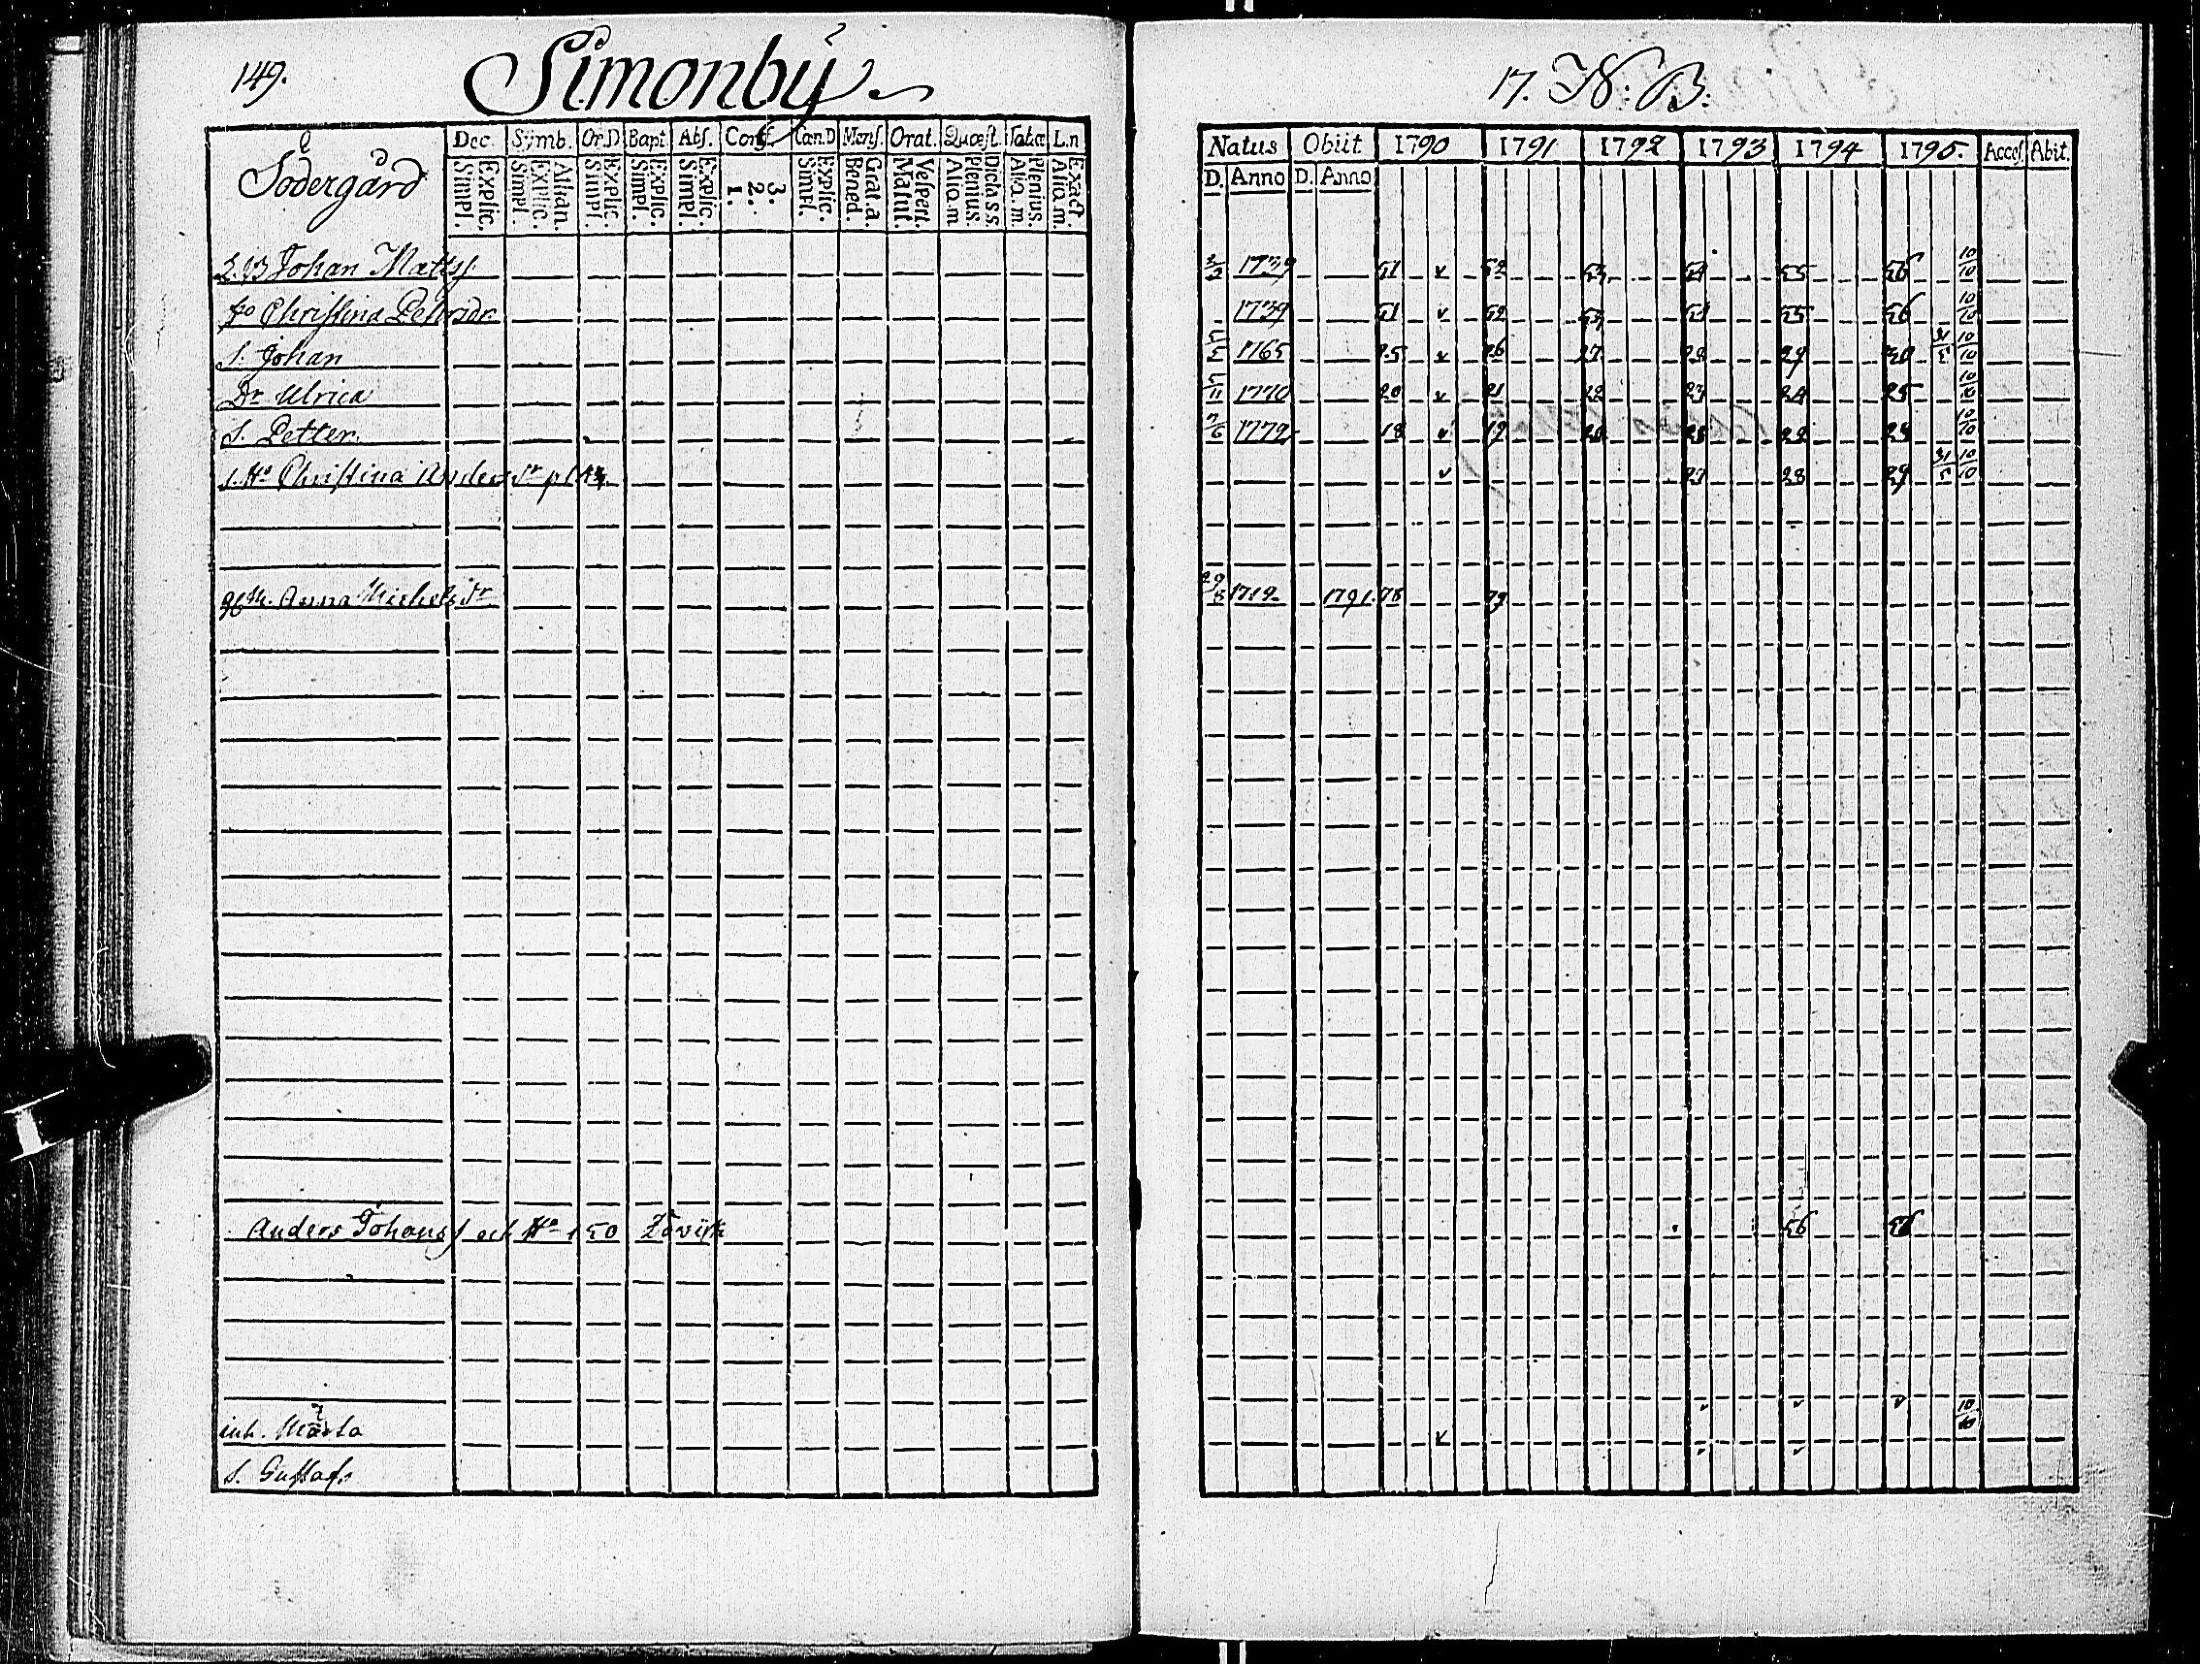 149. Simonbÿ.
17. N: B:
Södergård
Dec. Sÿmb. Or.D. Bapt. Abs. Conf. Can.D Mens. Orat. Quæst. Tabææ L.n
Explic. Simpl. Athan. Explic. Simpl. Explic. Simpl. Explic. Simpl. Explic. Simpl. 3. 2. 1. Explic. Simpl. Grat. a. Bened. Vespert. Matut. Dicta s.s. Plenius. Aliq. m Plenius. Aliq. m. Exact. Aliq. m.
Natus Obiit 1790 1791 1792 1793 1794 1795. Acces. Abit.
D. Anno D. Anno
Johan Matts. 1739 51 v 52 53 54 55 56 10/10
Christina Pehrsdr. 1739 51 v 52 53 54 55 56 10/10
S. Johan 5/5 1765 25 v 26 27 28 29 30 31/5 10/10
Dr. Ulrica 1770 20 v 21 22 23 24 25 10/10
S. Petter. 7/6 1772 18 v 19 20 22 23 10/10
s. Ho Christina Anders dr v 27 28 29 31/5 10/10
Anna Michels dr 1712 1791. 78 79
Anders Johans s och Ho 150 56
inh. Märta v v v v 10/10
s. Gustaf